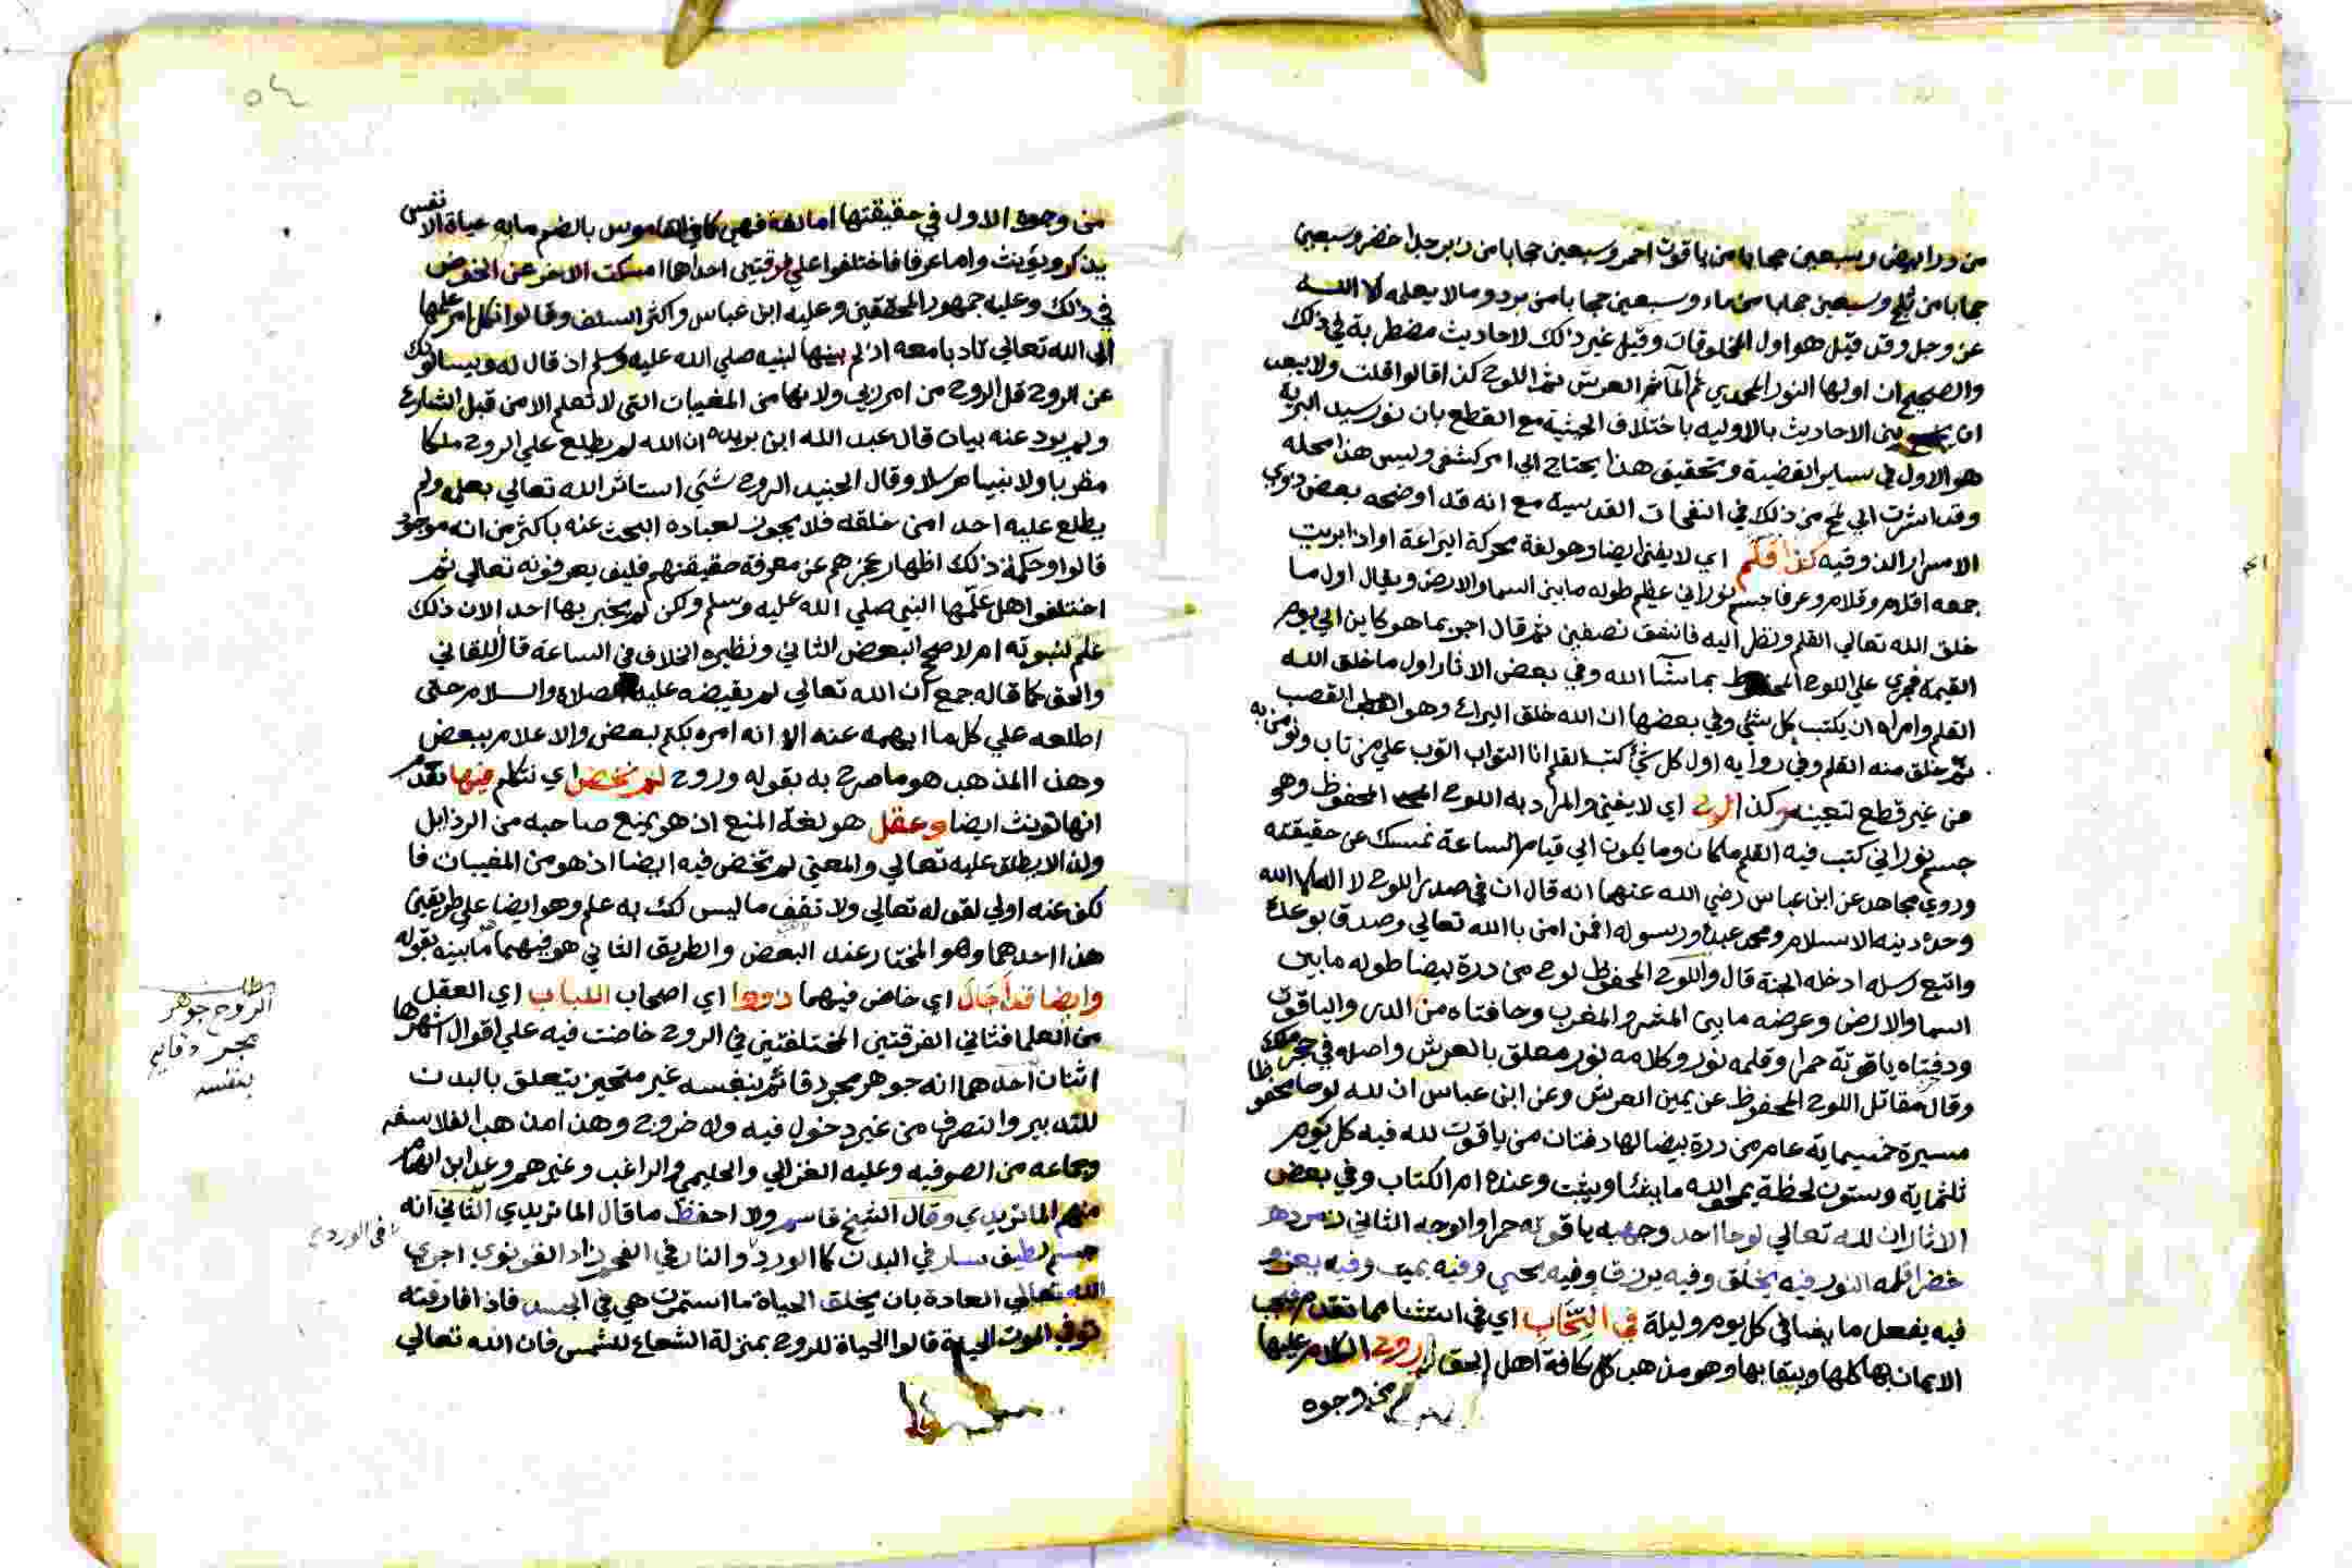 من در ابيض وسبعين حجابا من ياقوت احمر وسبعين حجابا من زبرجد اخضر وسبعين
حجابا من ثلج وسبعين حجابا من ماء وسبعين حجابا من برد وما لا يعلمه الا الله
عز وجل وقد قيل هو اول المخلوقات وقيل غير ذلك لاحاديث مضطربة في ذلك
والصحيح ان اولها النور المحمدي ثم الماء ثم العرش ثم اللوح كذا قالوا قلت ولا يبعد
ان بين الاحاديث بالاوليه باختلاف الحيثية مع القطع بان نور سيد البرية
هو الاول في ساير القضية وتحقيق هذا يحتاج الي امر كشفي وليس هذا محله
وقد اشرت الي لمح من ذلك في النفحات القدسية مع انه قد اوضحه بعض ذوي
الاسرار الذوقيه كذا قلم اي لا يفني ايضا وهو لغة محركة اليراعة او اذا بريت
جمعه اقلام وقلام وعرفا جسم نوراني عظيم طوله ما بين السما والارض ويقال اول ما
خلق الله تعالي القلم ونظر اليه فانشق نصفين ثم قال اجر بما هو كاين الي يوم
القيمة فجري علي اللوح المحفوظ بما شآ الله وفي بعض الاثار اول ما خلق الله
القلم وامره ان يكتب كل شئ وفي بعضها ان الله خلق اليراع وهو القصب
ثم خلق منه القلم وفي روايه اول كل شئ كتب القلم انا التواب اتوب علي من تاب
من غير قطع لتعينه وكذا لوح اي لا يفني والمراد به اللوح المحفوظ وهو
جسم نوراني كتب فيه القلم ما كان وما يكون الي قيام الساعة نمسك عن حقيقته
وروي مجاهد عن ابن عباس رضي الله عنهما انه قال ان في صدر اللوح لا اله الا الله
وحده دينه الاسلام ومحمد عبده ورسوله فمن امن بالله تعالي وصدق بوعده
واتبع رسله ادخله الجنة قال واللوح المحفوظ لوح من درة بيضا طوله ما بين
السما والارض وعرضه ما بين المشرق والمغرب وحافتاه من الدر والياقوت
ودفتاه ياقوتة حمرا وقلمه نور وكلامه نور معلق بالعرش واصله في حجر ملك
وقال مقاتل اللوح المحفوظ عن يمين العرش وعن ابن عباس ان لله لوحا محفوظا
مسيرة خمسماية عام من درة بيضا لها دفتان من ياقوت لله فيه كل يوم
ثلثماية وستون لحظة يمحو الله ما يشا ويثبت وعنده ام الكتاب وفي بعض
الاثار ان لله تعالي لوحا احد وجهيه ياقوته حمرا والوجه الثاني زمرده
خضرا قلمه النور فيه يخلق وفيه يرزق وفيه يحيي وفيه يميت وفيه يعز و
فيه يفعل ما يشا في كل يوم وليلة في انتخاب اي في استثنا مما تقدم فيجب
الايمان بها كلها وببقا بها وهو مذهب كل كافة اهل الحق روح الكلام عليها
من وجوه
من وجوه الاول في حقيقتها اما لغة فهي كما في القاموس بالضم ما به حياة الانفس
يذكر ويؤنث واما عرفا فاختلفوا علي فرقتين احداها امسكت الاخر عن الخوض
في ذلك وعليه جمهور المحققين وعليه ابن عباس واكثر السلف وقالوا نكل امر علمها
الي الله تعالي تادبا معه اذ لم يبينها لنبيه صلي الله عليه وسلم اذ قال له ويسالونك
عن الروح قل الروح من امر ربي ولانها من المغيبات التي لا تعلم الا من قبل الشارع
ولم يرد عنه بيان قال عبد الله ابن بريده ان الله لم يطلع علي الروح ملكا
مقربا ولا نبيا مرسلا وقال الجنيد الروح شئ استاثر الله تعالي بعلمه ولم
يطلع عليه احدا من خلقه فلا يجوز لعباده البحث عنه باكثر من انه موجود
قالوا وحكمة ذلك اظهار عجزهم عن معرفة حقيقتهم فكيف يعرفونه تعالي ثم
اختلفوا هل علمها النبي صلي الله عليه وسلم ولكن لم يخبر بها احد الان ذلك
علم لنبوته ام لا صحح البعض الثاني ونظيره الخلاف في الساعة قال اللقاني
والحق كما قاله جمع ان الله تعالي لم يقبضه عليه الصلاة والسلام حتي
اطلعه علي كل ما ابهمه عنه الا انه امره بكتم بعض والاعلام ببعض
وهذا المذهب هو ما صرح به بقوله وروح لم نخض اي نتكلم فيها تقدم
انها تونث ايضا وعقل هو لغة المنع اذ هو يمنع صاحبه من الرذايل
ولذا لا يطلق عليه تعالي والمعني لم نخض فيه ايضا اذ هو من المغيبات فا
لكف عنه اولي لقوله تعالي ولا تقف ما ليس لك به علم وهو ايضا علي طريقين
هذا احدهما وهو المختار عند البعض والطريق الثاني هو فيهما ما بينه بقوله
وايضا قد جال اي خاض فيهما ذووا اي اصحاب اللباب اي العقل
من العلما فثاني الفرقتين المختلفتين في الروح خاضت فيه علي اقوال اشهرها
اثنان احدهما انه جوهر مجرد قائم بنفسه غير متحيز يتعلق بالبدن
للتدبير والتصرف من غير دخول فيه ولا خروج وهذا مذهب الفلاسفه
وجماعه من الصوفيه وعليه الغزالي والحليمي والراغب وغيرهم وعد ابن الهمام
منهم الماتريدي وقال الشيخ قاسم ولا احفظ ما قال الماتريدي الثاني انه
جسم لطيف سار في البدن كما الورد والنار في الفحم زاد القونوي اجري
الله تعالي العادة بان يخلق الحياة ما استمرت هي في الجسد فاذا فارقته
توفي الموت الحياة قالوا الحياة للروح بمنزلة الشعاع للشمس فان الله تعالي
مطلب
الروح جوهر
مجرد قايم
بنفسه